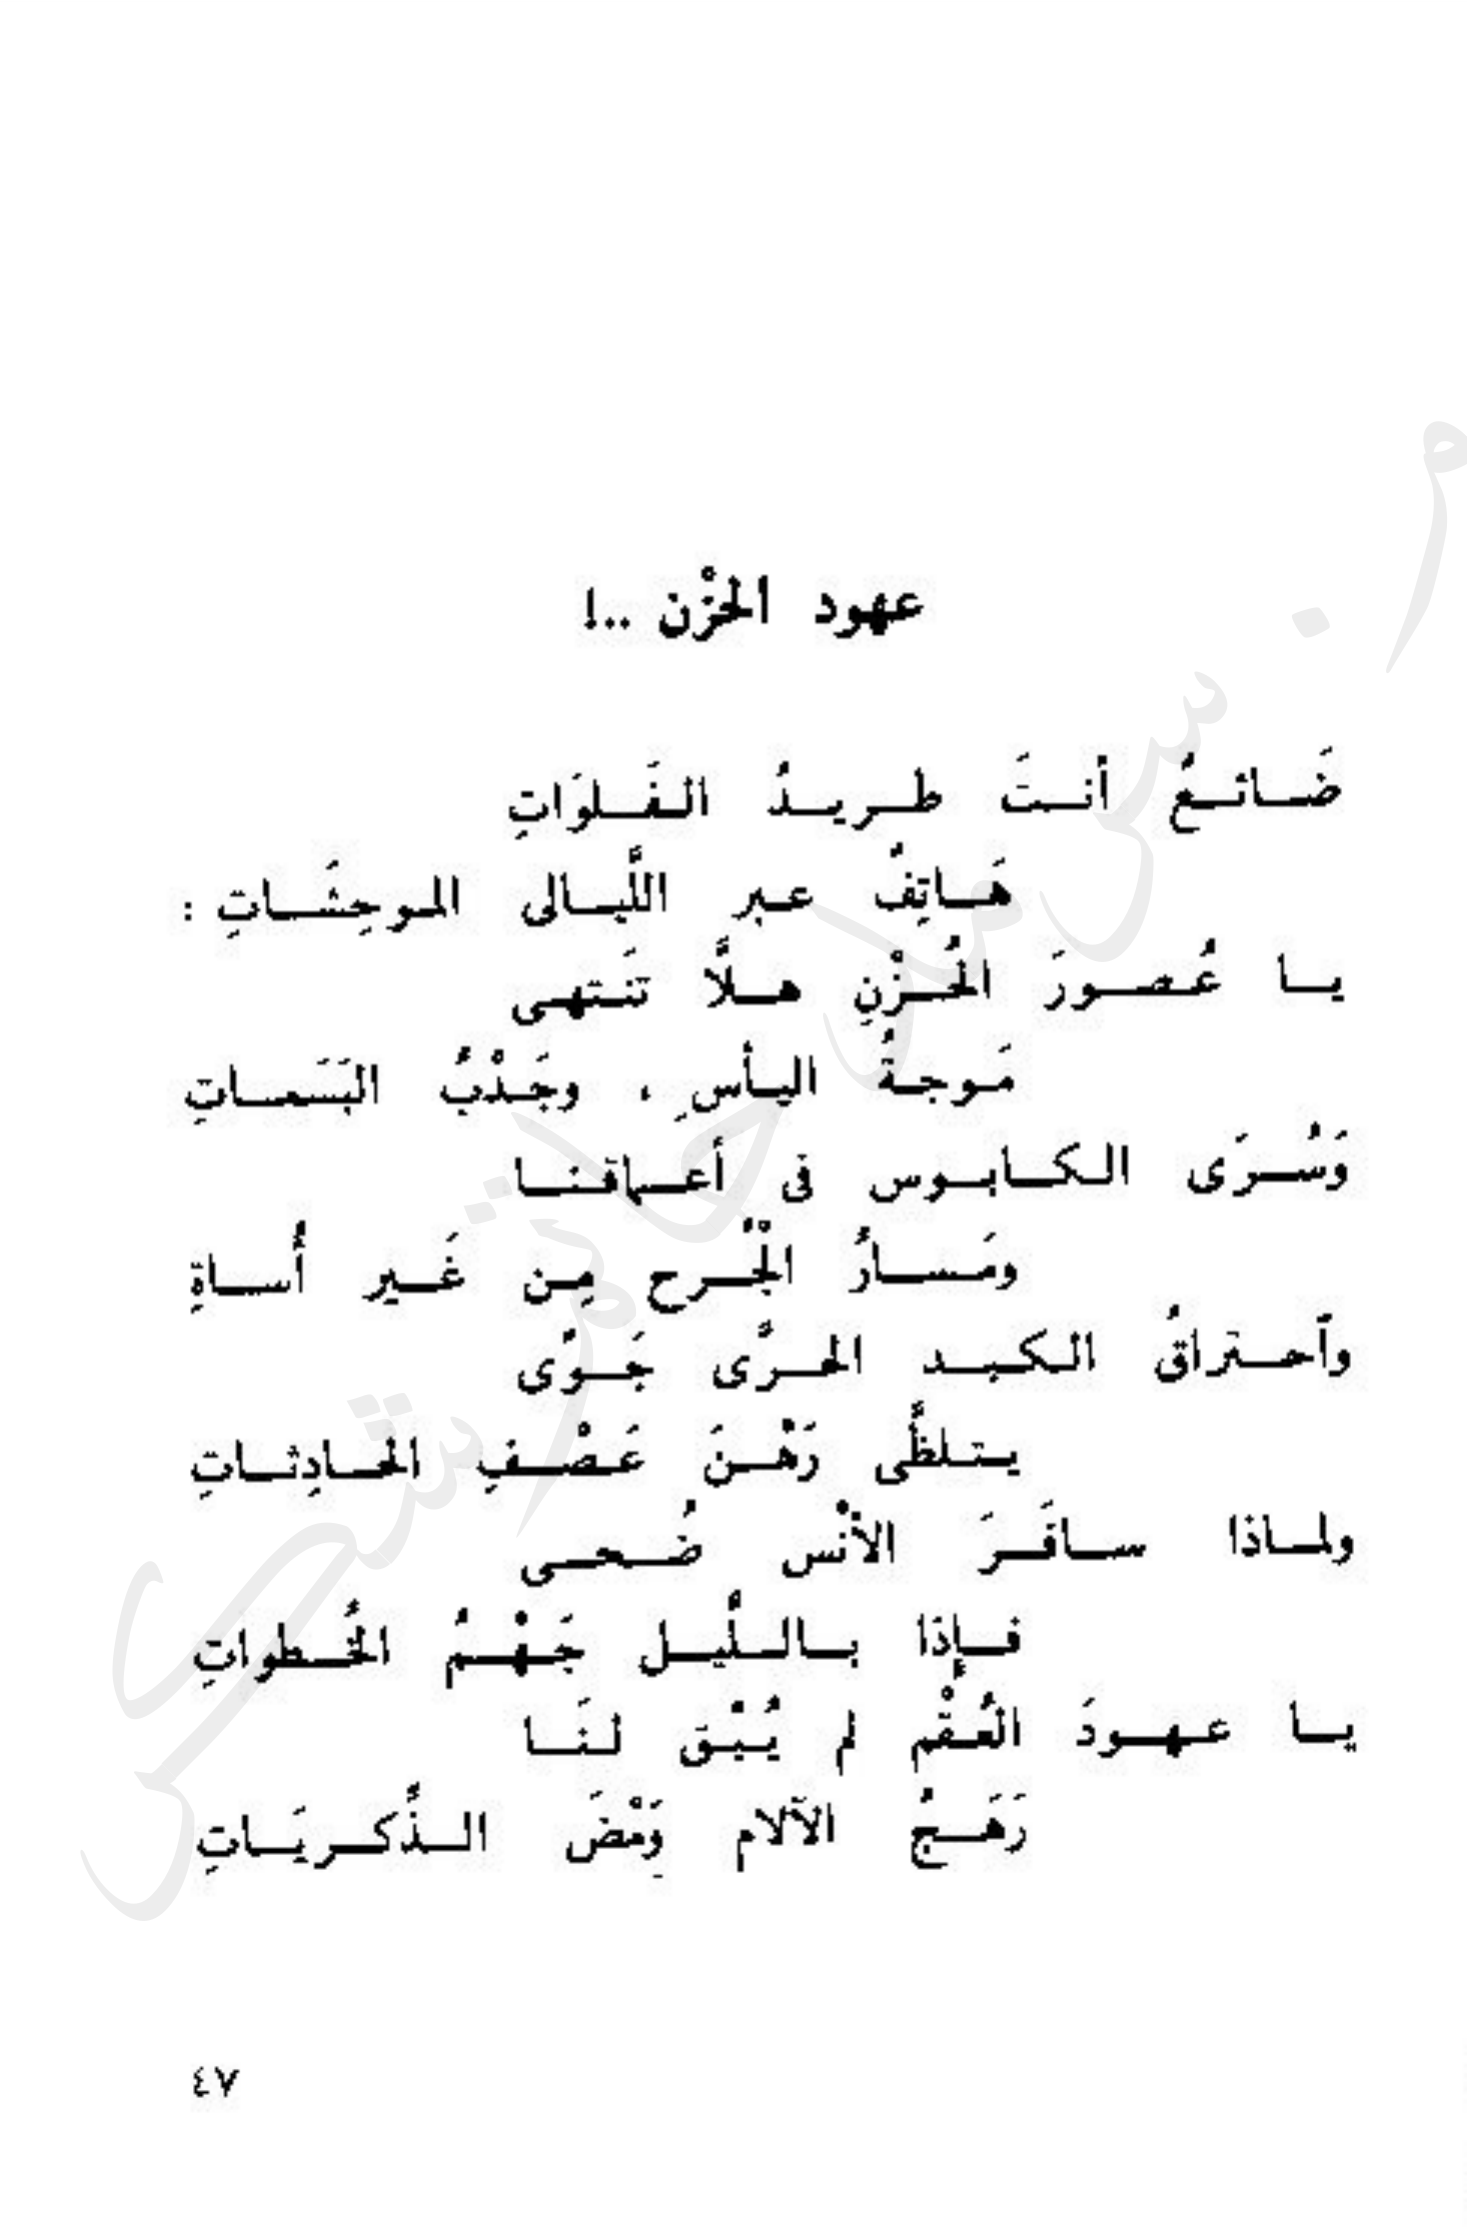 عهود الحزْن ..!
ضَائعٌ أنتَ طريدُ الفَلوَاتِ
هَاتِفٌ عبر اللَّيالى الموحِشَاتِ :
يا عُصورَ الحُزْنِ هلَّا تَنتهى
مَوجةُ اليأسِ ، وجَدْبُ البَسَماتِ
وَسُرَى الكابوس فى أعماقنا
ومَسارُ الْجُرح مِن غَير أُساةِ
وآحتراقُ الكبد الحرَّى جَوًى
يتلظَّى رَهْنَ عَصْفِ الحادِثاتِ
ولماذا سافَرَ الأنْس ضُحى
فإذا بالليل جَهْمُ الخُطواتِ
يا عهودَ العُقْم لم يُبْق لنَا
رَهَجُ الآلام وَمْضَ الذِّكريَاتِ
٤٧